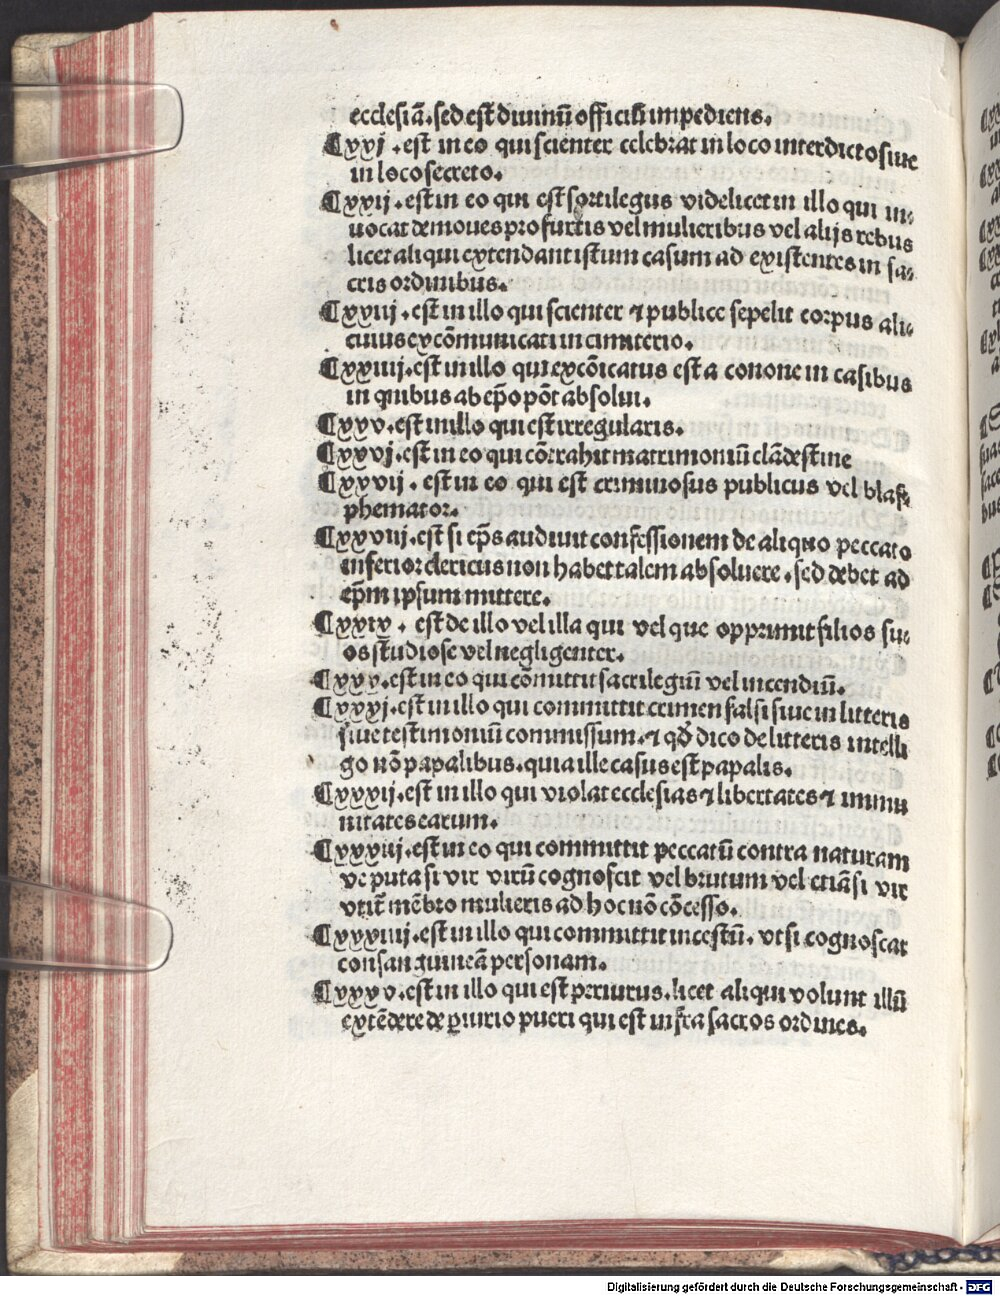 ecclesiā.sed est diuinū officiū impediens.
¶xxj .est in eo qui scienter celebrat in loco interdicto siue
in loco secreto.
¶xxij .est in eo qui est sortilegus videlicet in illo qui in⸗
uocat demones pro furtis vel mulieribus vel alijs rebus
licet aliqui extendant istum casum ad existentes in sa⸗
cris ordinibus.
¶xxiij .est in illo qui scienter ⁊ publice sepelit corpus ali⸗
cuius excōmunicati in cimiterio.
¶xxiiij.est in illo qui excōicatus est a conone in casibus
in quibus ab ep̄o pōt absolui.
¶xxv.est in illo qui est irregularis.
¶xxvj.est in eo qui cōtrahit matrimoniū clādestine
¶xxvij . est in eo qui est criminosus publicus vel blas⸗
phemator.
¶xxviij.est si ep̄s audiunt confessionem de aliquo peccato
inferior clericus non habet talem absoluere .sed debet ad
ep̄m ipsum mittere.
¶xxix . est de illo vel illa qui vel que opprimit filios su⸗
os studiose vel negligenter.
¶xxx.est in eo qui cōmittit sacrilegiū vel incendiū.
¶xxxj.est in illo qui committit crimen falsi siue in litteris
siue testimoniū commissum.⁊ qđ dico de litteris intelli
go nō papalibus.quia ille casus est papalis.
¶xxxij.est in illo qui violat ecclesias ⁊ libertates ⁊ immu
nitates earum.
¶xxxiij.est in eo qui committit peccatū contra naturam
ve puta si vir virū cognoscit vel brutum vel etiā si vir
vtit̄ mēbro mulieris ad hoc nō cōcesso.
¶xxxiiij.est in illo qui committit incestū. vt si cognoscat
consanguineā personam.
¶xxxv.est in illo qui est periurus.licet aliqui volunt illū
extēdere de ꝑiurio pueri qui est infra sacros ordines.
Digitalisierung gefördert durch die Deutsche Forschungsgemeinschaft - DFG